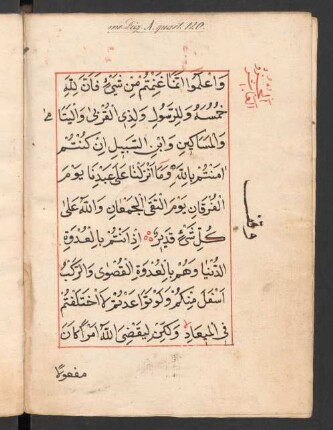 واعلموا انما غنمتم من شيء فان لله
خمسه وللرسول ولذي القربى واليتامى
والمساكين وابن السبيل ان كنتم
امنتم بالله وما انزلنا على عبدنا يوم
الفرقان يوم التقى الجمعان والله على
كل شيء قدير اذ انتم بالعدوة
الدنيا وهم بالعدوة القصوى والركب
اسفل منكم ولو تواعدتم لاختلفتم
في الميعاد ولكن ليقضي الله امرا كان
مفعولا
الجزء
العاشر
وقف